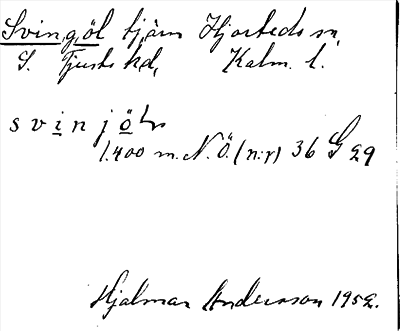 Svingöl tjärn Hjorteds sn,
S. Tjusts hd, Kalm. l.
svinjöln
1.400 m. N.Ö. (n:r) 36 G 29
Hjalmar Andersson 1952.